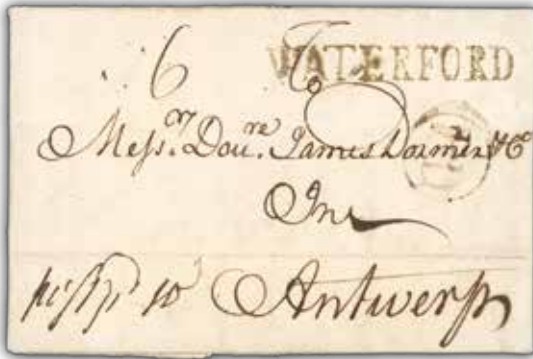 6 To WATERFORD
Messrs. Doure. James Dormer & Co
In
Antwerp